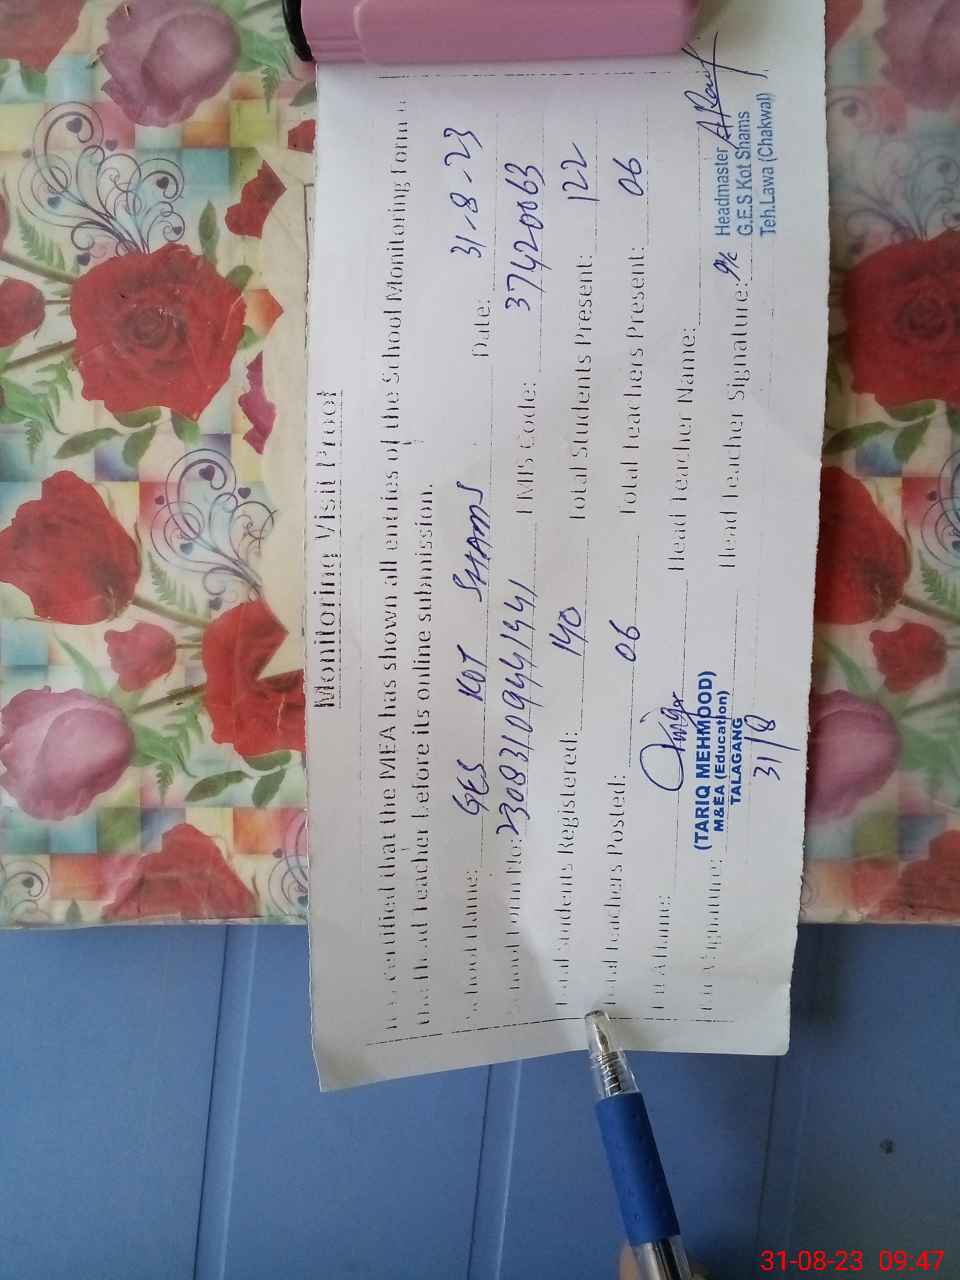 Monitoring Visit Proof
It is certified that the MEA has shown all entries of the School Monitoring Form to
the Head Teacher before its online submission.
School Name: GES KOT SHAMS Date: 31-8-23
School Form No: EMIS Code: 37420063
Total Students Registered: 140 Total Students Present: 122
Total Teachers Posted: 06 Total Teachers Present: 06
MEA Name: Head Teacher Name:
MEA Signature: Head Teacher Signature:
(TARIQ MEHMOOD)
M&EA (Education)
TALAGANG
31/8
Headmaster
G.E.S Kot Shams
Teh.Lawa (Chakwal)
31-08-23 09:47